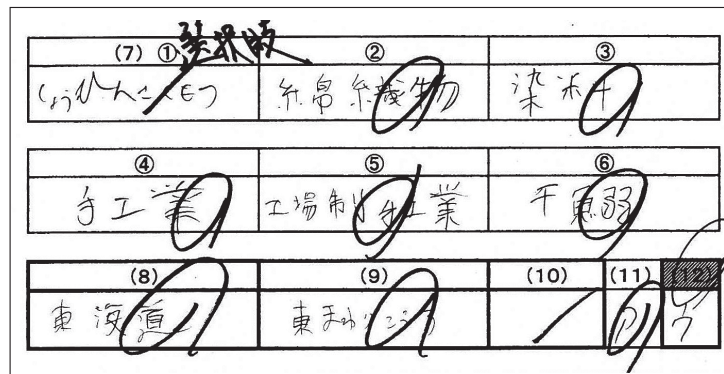 (7) ① ② ③
しょうひんさくもつ 糸帛織物 染料
④ ⑤ ⑥
手工業 工場制手工業 干鰯
(8) (9) (10) (11) (12)
東海道 東まわりこうろ ウ